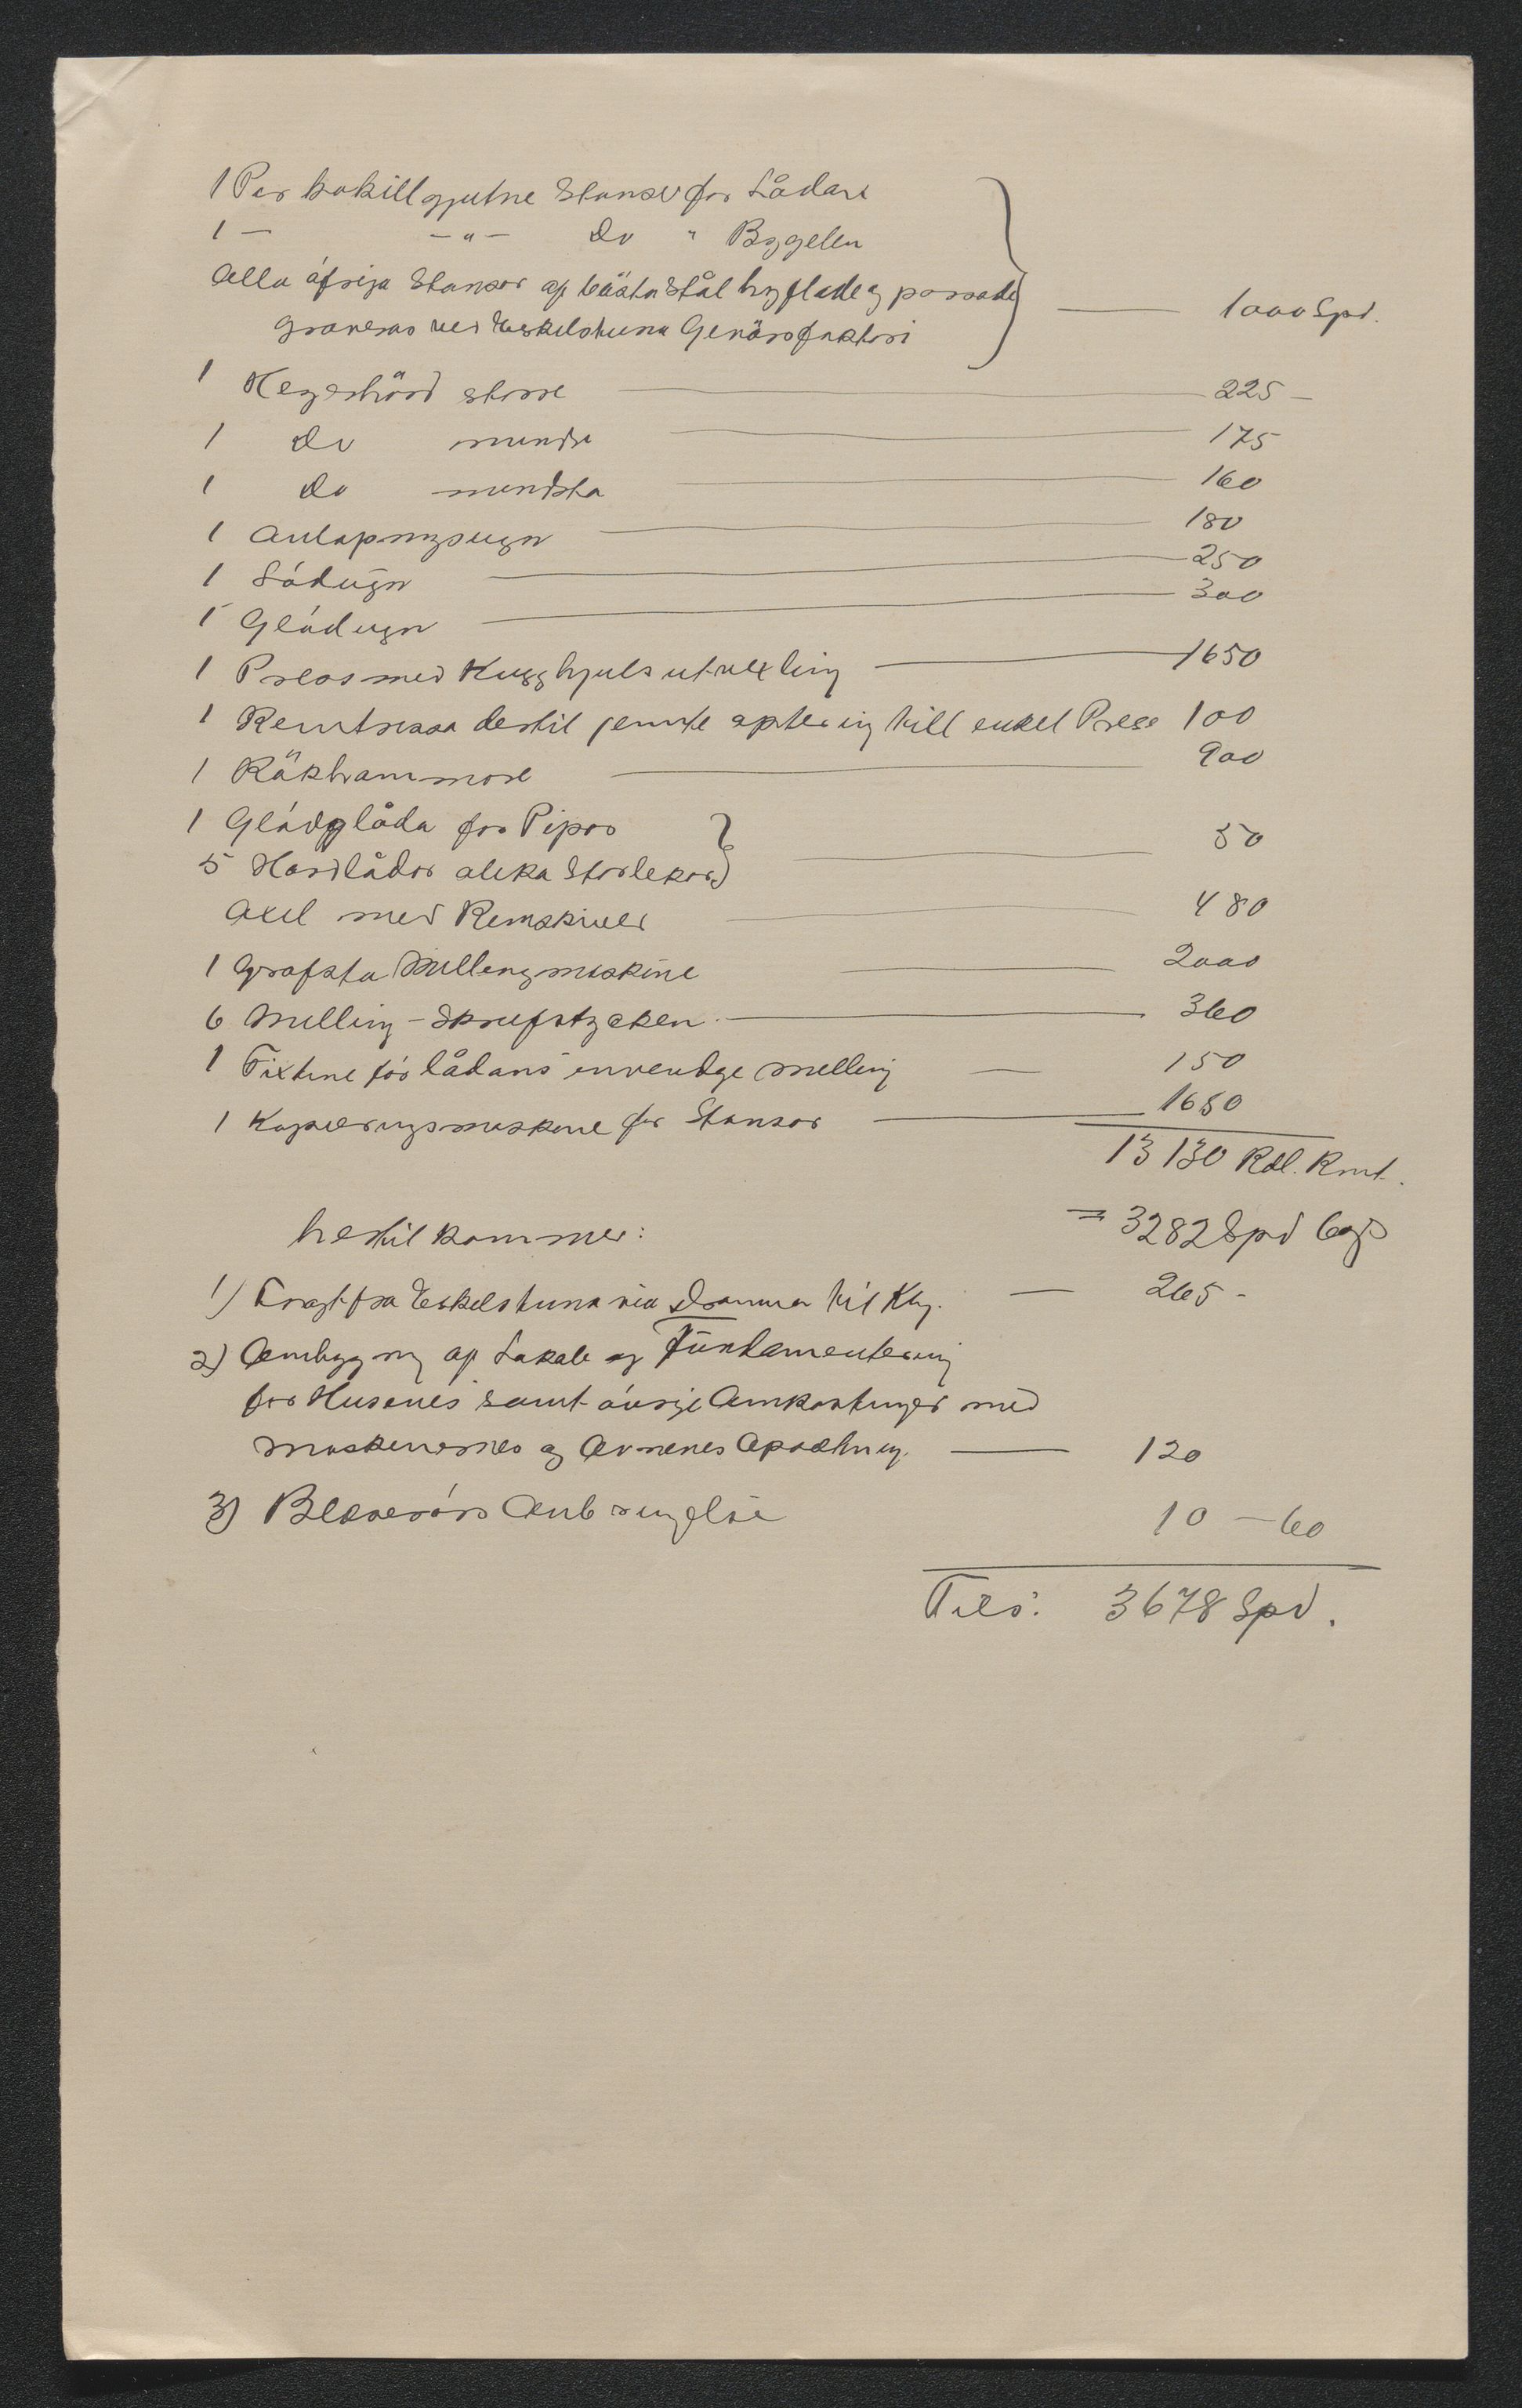 1 Par kokillgjutne Stanser for Lådan
1 — — " — Do " Bygelen
Alla öfriga Stansor af bästa Stål hyflade og passade
graveras ved Eskilstuna Gevärsfaktori — 1000 Spd.
1 större — 225 —
1 Do mindre — 175
1 Do mindsta — 160
1 Anlöpningsugn — 180
1 Lödugn — 250
1 Glödugn — 300
1 Press med Kugghjulsutvexling — 1650
1 Remtrissa dertil jemte aptering till enkel Press 100
1 Räkhammare — 900
1 Glödglåda for Pipor
5 Hardlådor olika Storlekar — 50
Axel med Remskiver — 480
1 Grafsta Millingmaskine — 2000
6 Milling-Skrufstycken — 360
1 Fixtur för lådans invendige Milling — 150
1 Kopieringsmaskine for Stansor — 1650
13130 Rdl. Rmt.
= 3282 Spd 60 β
hertil kommer:
1) Fragt fra Eskilstuna via Drammen til Kbg. — 265 -
2) Ombygning af Lokale og Fundamentering
for Husenes samt övrige Omkostninger med
Maskinernes og Ovnenes Opsætning. — 120
3) Blæserörs Anbringelse 10 — 60
Tils. 3678 Spd.